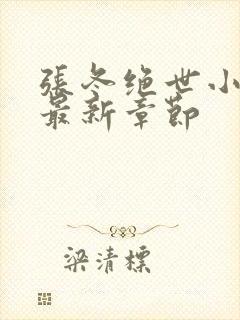 張冬绝世小
最新章節
梁清標